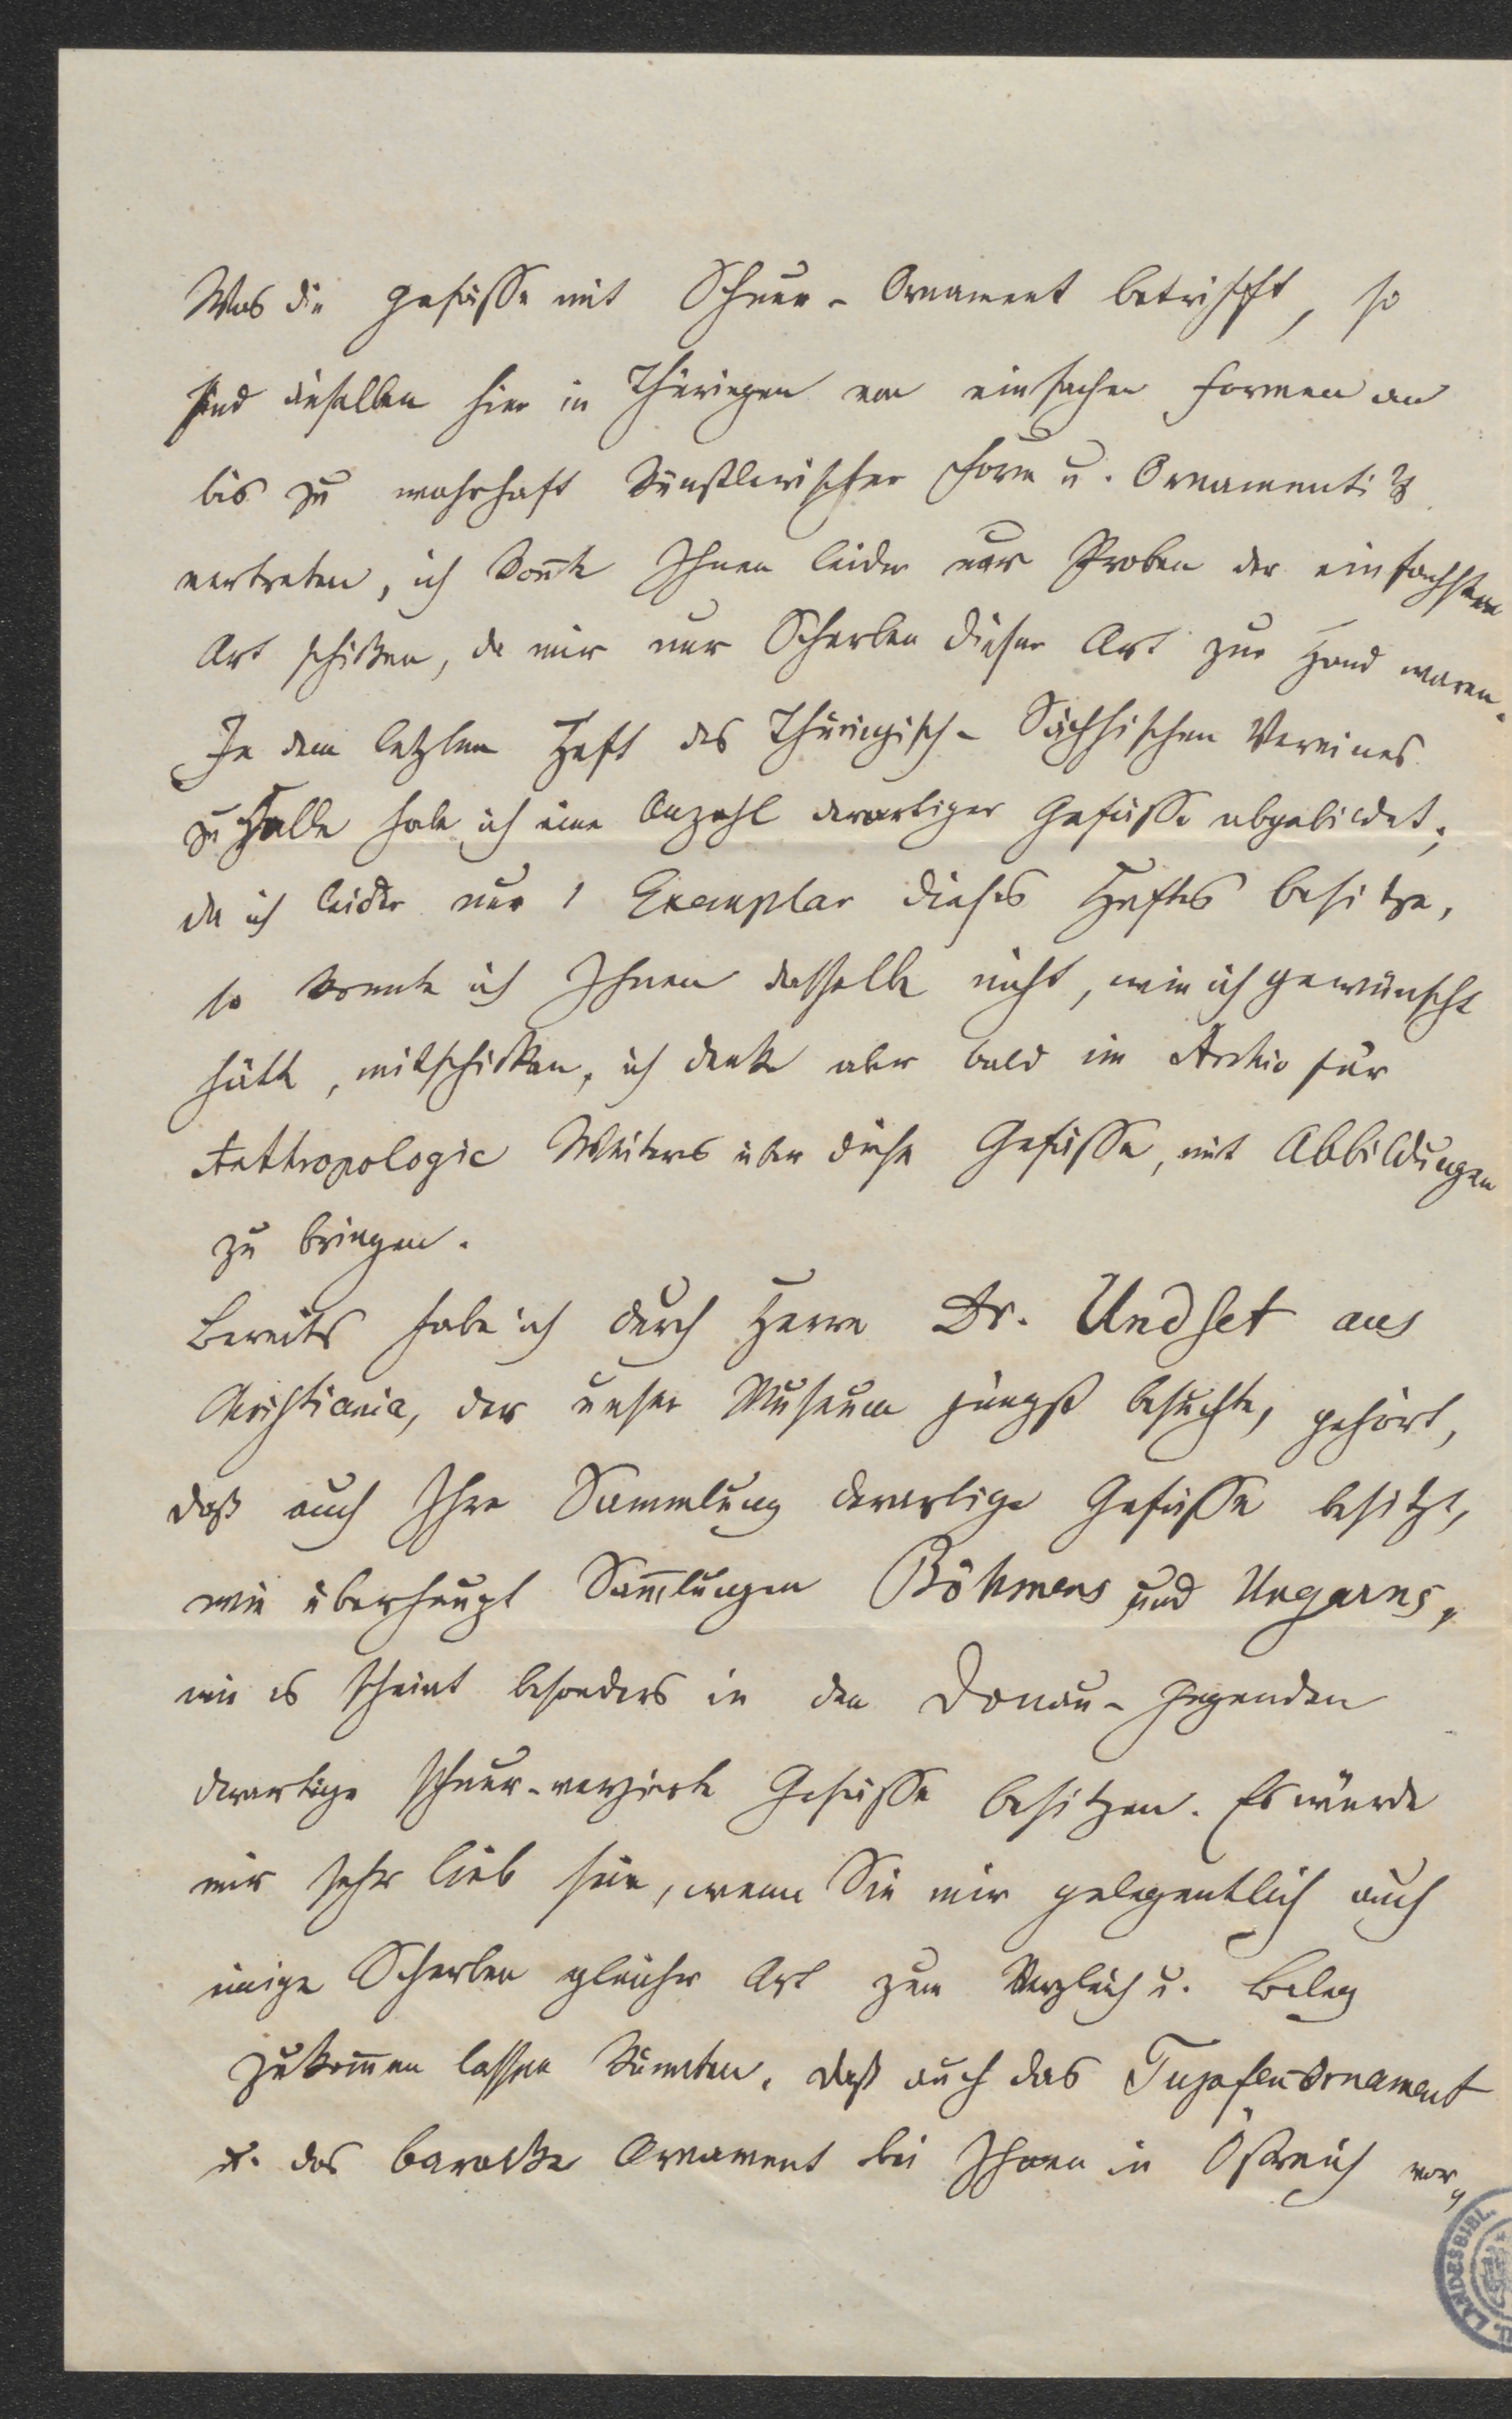 Was die Gefässe mit Schnur-Ornament betrifft, so
sind dieselben hier in Thüringen von einfachen Formen an
bis zu wahrhaft künstlerischer Form u. Ornamentik
vertreten, ich kon̄te Ihnen leider nur Proben der einfachsten
Art schicken, da mir nur Scherben dieser Art zur Hand waren.
In dem letzten Heft des Thüringisch-Sächsischen Vereines
zu Halle habe ich eine Anzahl derartiger Gefässe abgebildet;
da ich leider nur 1 Exemplar dieses Heftes besitze,
so konnte ich Ihnen dasselbe nicht, wie ich gewünscht
hätte, mitschicken, ich denke aber bald im Archiv für
Anthropologie Weiteres über diese Gefässe, mit Abbildungen
zu bringen.
Bereits habe ich durch Herrn Dr. Undset aus
Christiania, der unser Museum jüngst besuchte, gehört,
daß auch Ihre Sammlung derartige Gefässe besitzt,
wie überhaupt Sam̄lungen Böhmens und Ungarns,
wie es scheint besonders in den Donau-Gegenden
derartige schnur-verzierte Gefässe besitzen. Es würde
mir sehr lieb sein, wenn Sie mir gelegentlich auch
einige Scherben gleicher Art zum Vergleich u. Beleg
zukom̄en lassen könnten. Daß auch das Tupfenornament
u. das barocke Ornament bei Ihnen in Östreich vor-
LANDESBIBL.